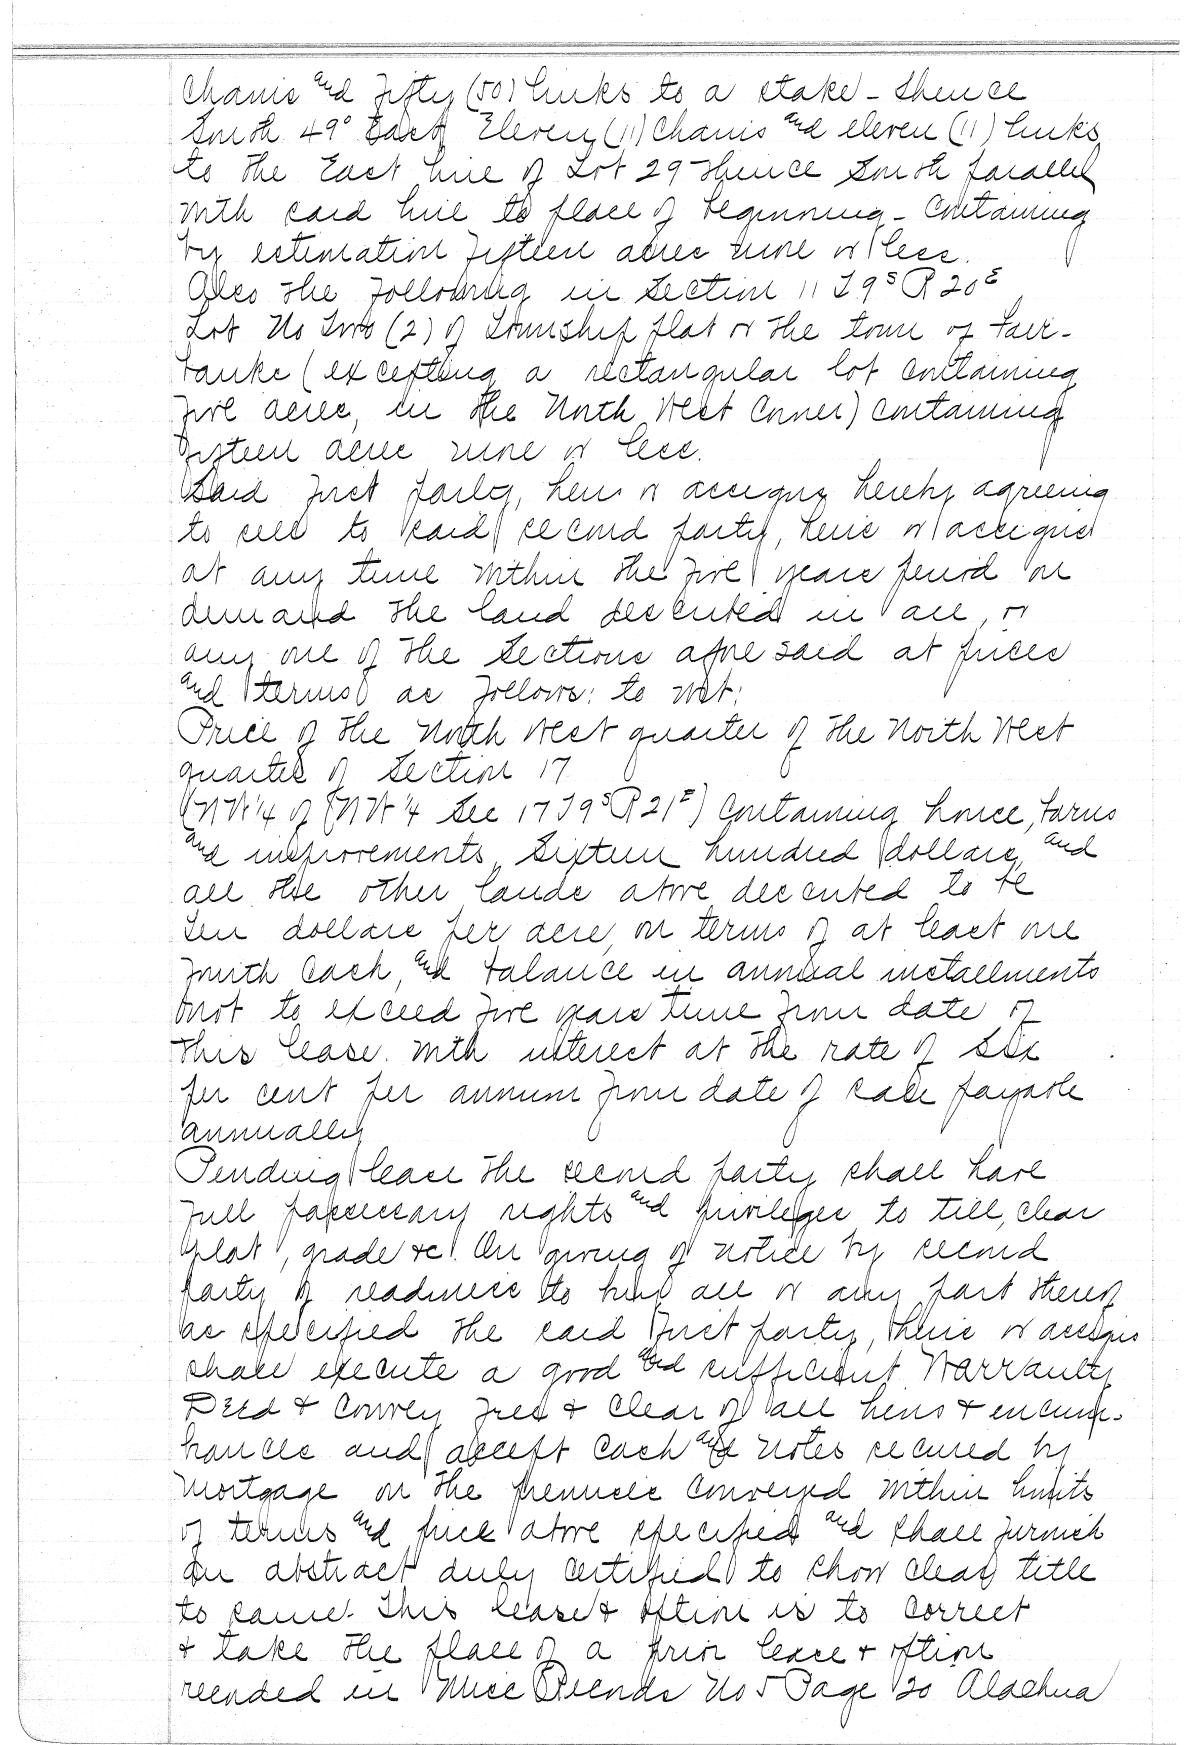 Chains and Fifty (50) links to a stake - thence
South 49° East Eleven (11) Chains and eleven (11) links
to the East line of Lot 29 thence South parallel
with said line to place of beginning - Containing
by estimation fifteen acres more or less.
Also the following in Section 11 T 9 S R 20 E
Lot No Two (2) of Township plat or the town of Fair-
banks (excepting a rectangular lot containing
five acres, in the North West Corner) containing
fifteen acres more or less.
Said first party, heirs or assigns hereby agreeing
to sell to said second party, heirs or assigns
at any time within the five years period on
demand the land described in all, or
any one of the Sections aforesaid at prices
and terms as follows: to wit:
Price of the North West quarter of the North West
quarter of Section 17
(NW 1/4 of NW 1/4 Sec 17 T 9 S R 21 E) Containing house, barns
and improvements, Sixteen hundred dollars, and
all the other lands above described to be
Ten dollars per acre, on terms of at least one
fourth Cash, and balance in annual installments
not to exceed five years time from date of
this lease. With interest at the rate of Six
per cent per annum from date of sale payable
annually
Pending lease the second party shall have
full possessary rights and privileges to till, clear
plat, grade &c. On giving of notice by second
party of readiness to buy all or any part thereof
as specified the said first party, heirs or assigns
shall execute a good and sufficient Warranty
Deed & Convey free & Clear of all liens & encum-
brances and accept Cash and notes secured by
Mortgage on the premises Conveyed within limits
of terms and price above specified and shall furnish
an abstract duly certified to show clear title
to same. This lease & option is to correct
& take the place of a prior lease & option
recorded in Misc Records No 5 Page 20 Alachua